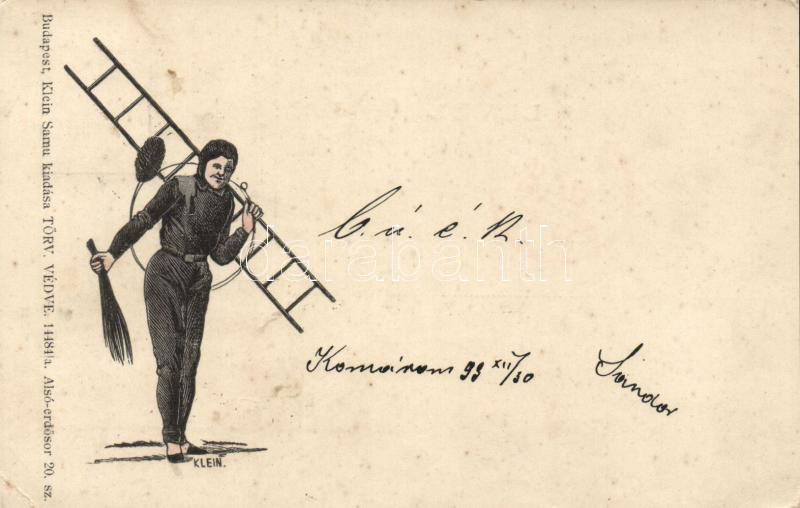 Budapest, Klein Samu kiadása TÖRV. VÉDVE. 14484/a. Alsó-erdősor 20. sz.
B. ú. é. k.
darabanth
Komárom 99 XII/30
Sándor
KLEIN.